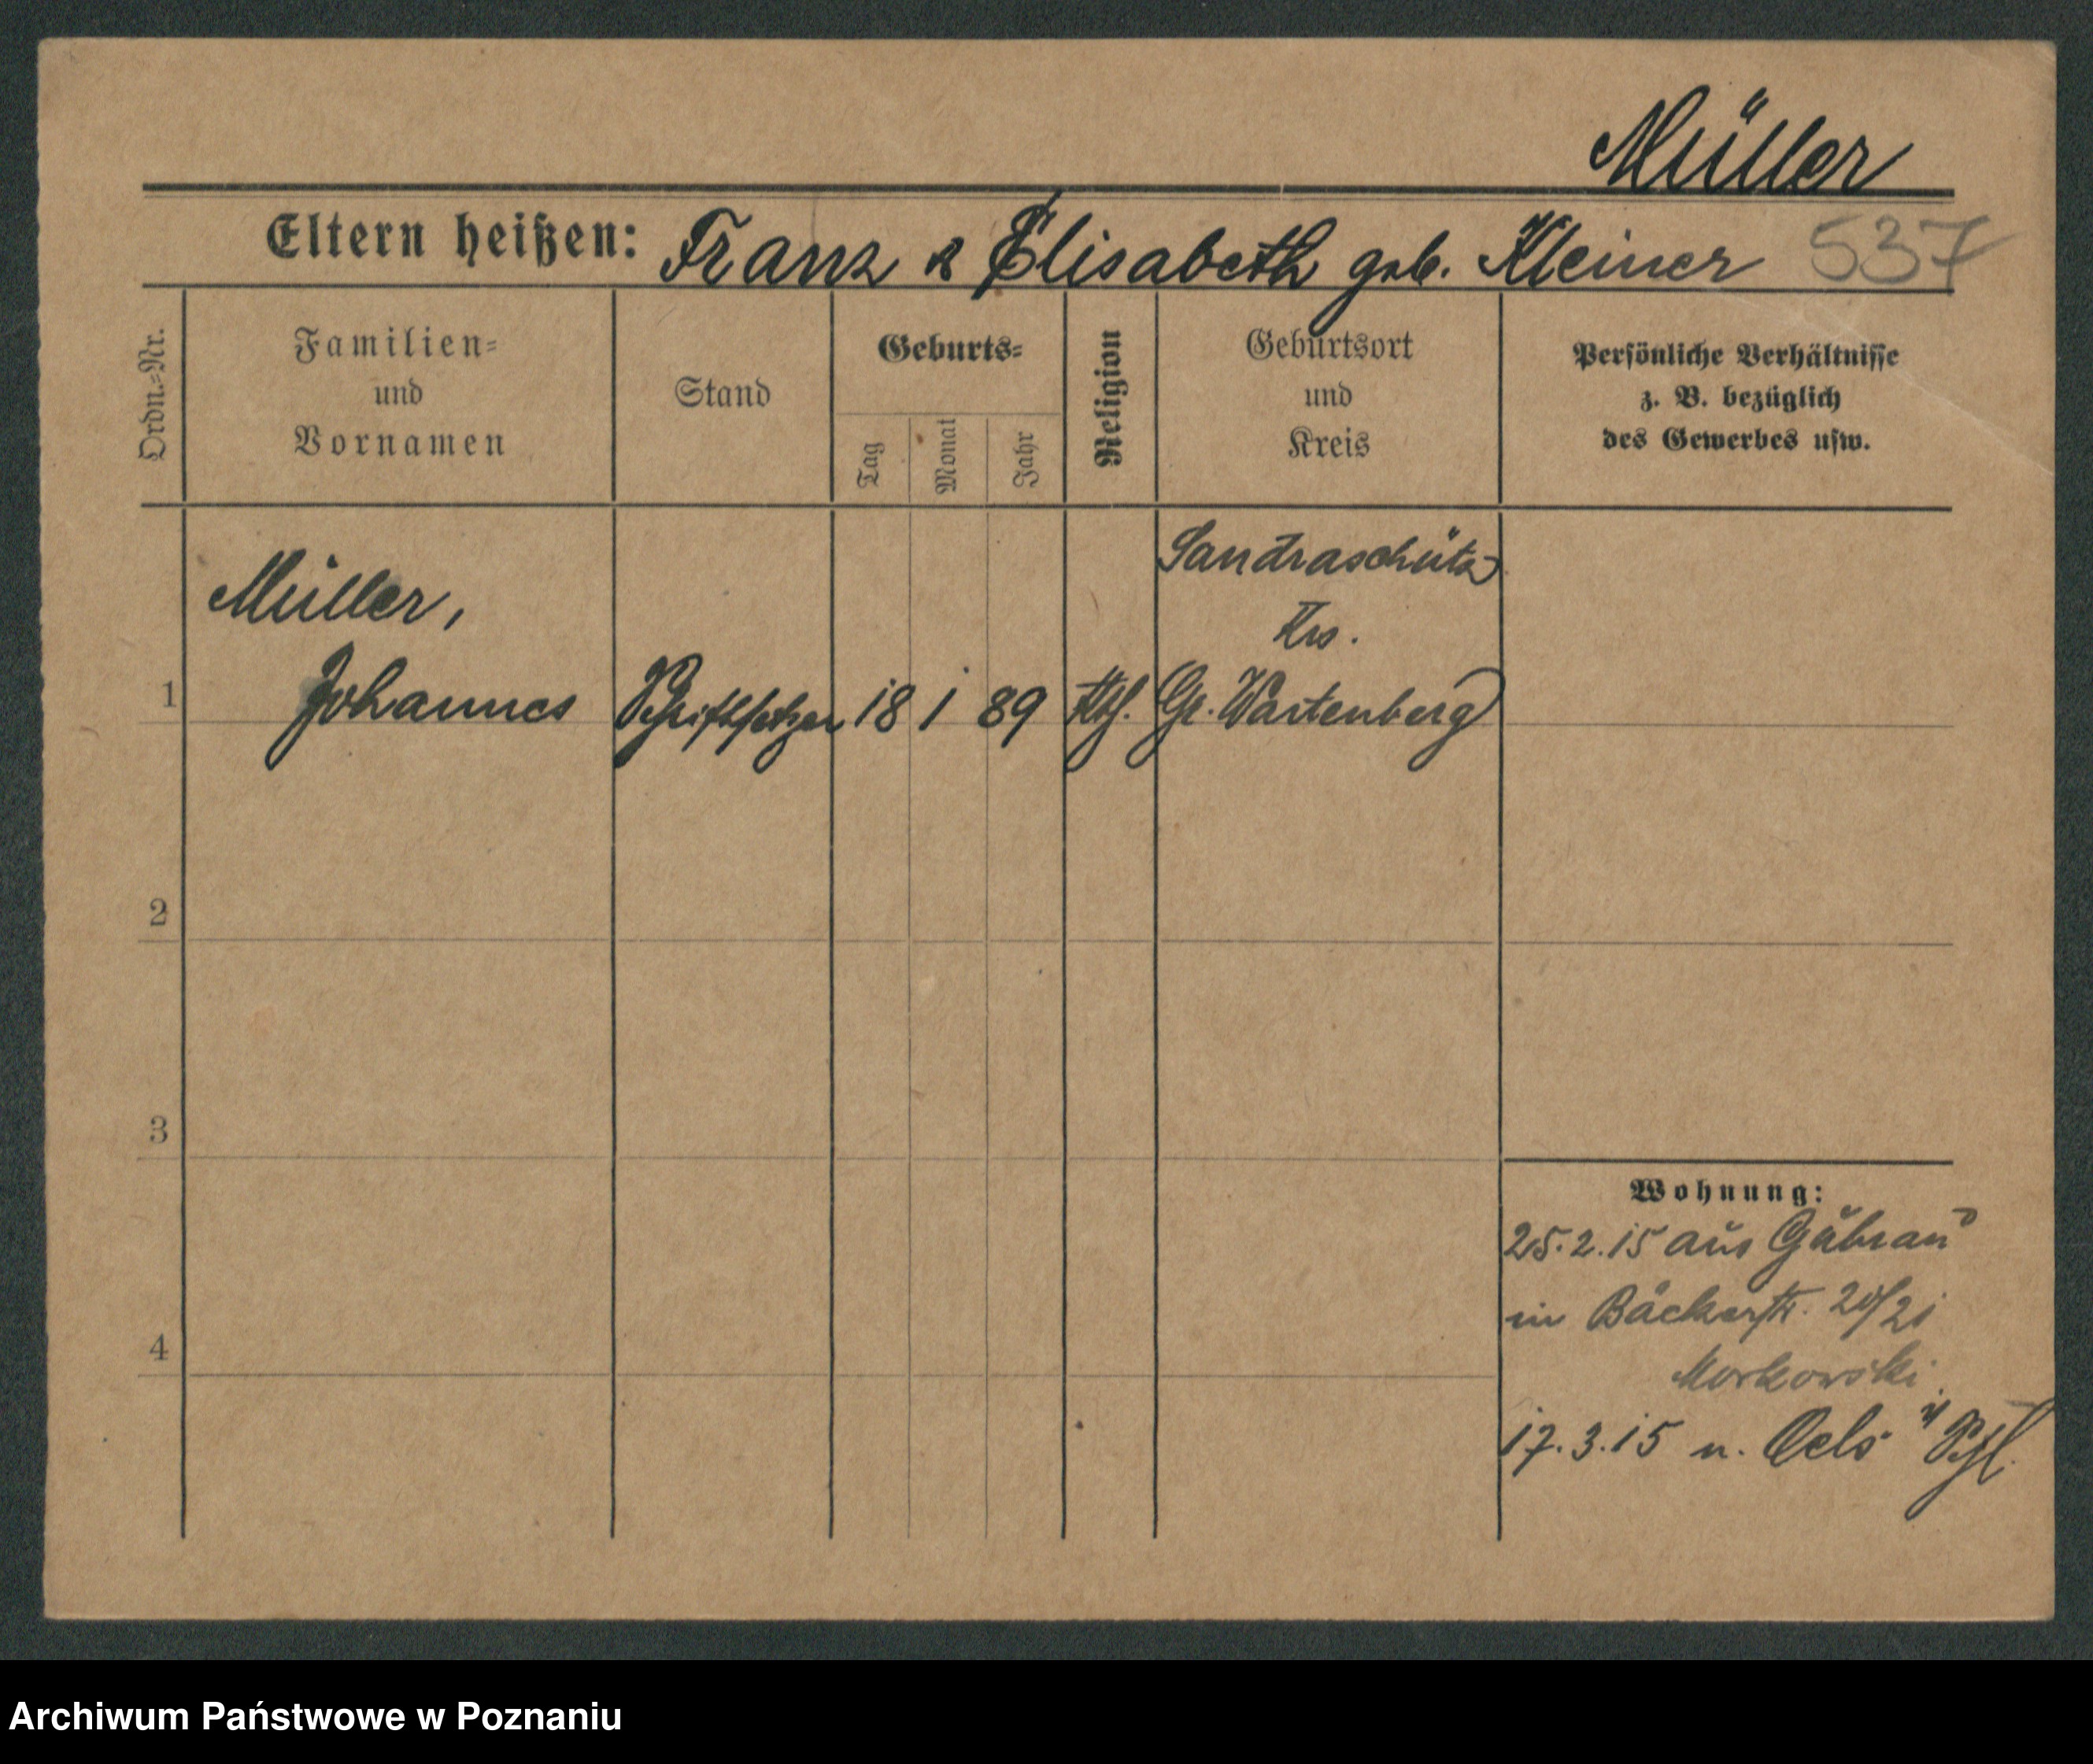 Müller
Eltern heißen: Franz & Elisabeth geb. Kleiner 537
Ordn.=Nr.
Familien=
und
Vornamen
Stand
Geburts=
Tag
Monat
Jahr
Religion
Geburtsort
und
Kreis
Persönliche Verhältnisse
z. B. bezüglich
des Gewerbes usw.
Sandraschütz
Krs.
Müller,
1 Johannes Schriftsetzer 18 1 89 Kth. Gr. Wartenberg
2
3
4
Wohnung:
25.2.15 aus Guhrau
in Bäckerstr. 20/21
Morkowski
17.3.15 n. Oels i/ Schl.
Archiwum Państwowe w Poznaniu